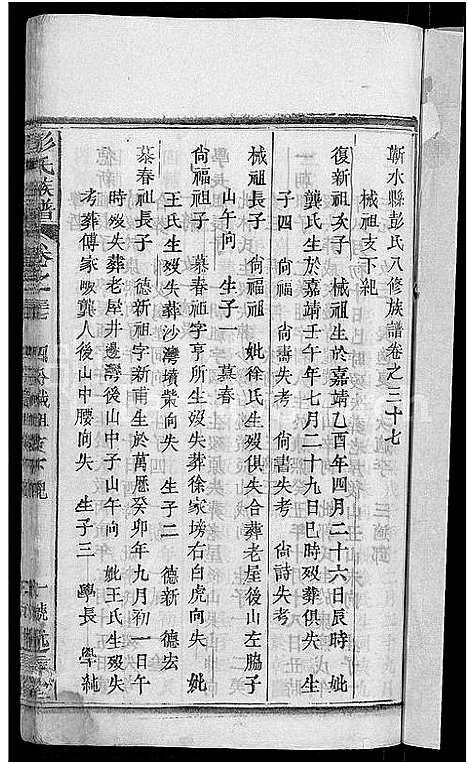 蘄水縣彭氏八修族譜卷之三十七
械祖支下㓜
復新祖次子　械祖生於嘉靖乙酉年四月二十六日辰時　妣
龔氏生於嘉靖壬午年七月二十九日巳時歿葬俱失　生
子四　尙燾失考　尙書失考　尙詩失考
械祖長子　尙福祖　妣徐氏生歿俱失合葬老屋後山左脇子
山午向　生子一　慕春
尙福祖子　慕春祖字亨所生歿失葬徐家塝右白虎向失　妣
王氏生歿失葬沙灣墳柴向失　生子二　德新　德宏
慕春祖長子　德新祖字新甫生於萬厯癸卯年九月初一日午
時歿失葬老屋井邊灣後山中子山午向　妣王氏生歿失
考葬傅家㘰龔人後山中腰向失　生子三　學長　學純
彭氏族譜　卷之三